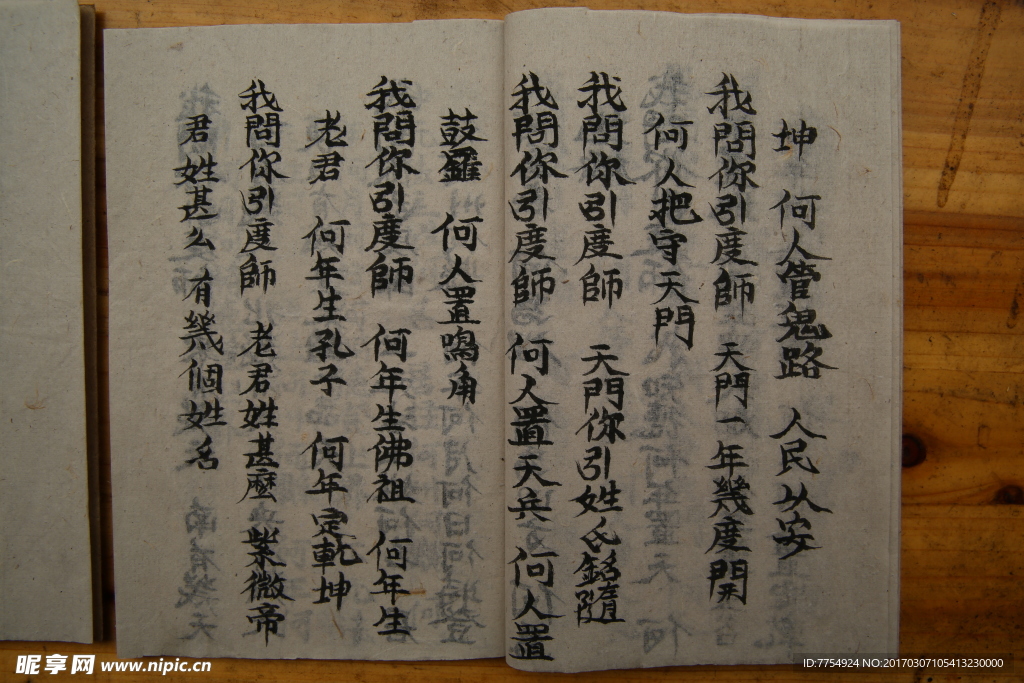 坤 何人管鬼路 人民以安
我問你引度師 天門一年幾度開
何人把守天門
我問你引度師 天門你引姓氏銘隨
我問你引度師 何人置天兵 何人置
鼓鑼 何人置鳴角
我問你引度師 何年生佛祖 何年生
老君 何年生孔子 何年定乾坤
我問你引度師 老君姓甚麼 紫微帝
君姓甚么 有幾個姓名
昵享网 www.nipic.cn
ID:7754924 NO:20170307105413230000